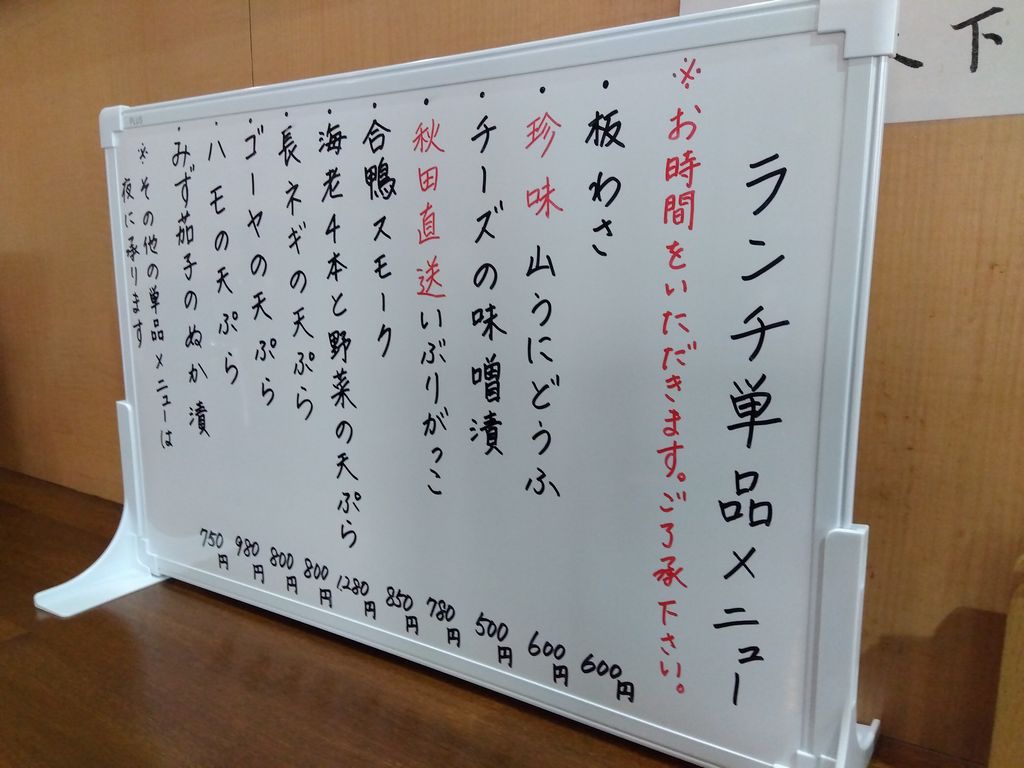 ランチ単品メニュー
※お時間をいただきます。ご了承下さい。
・板わさ 600円
・珍味 山うにどうふ 600円
・チーズの味噌漬 500円
・秋田直送いぶりがっこ 780円
・合鴨スモーク 850円
・海老4本と野菜の天ぷら 1280円
・長ネギの天ぷら 800円
・ゴーヤの天ぷら 800円
・ハモの天ぷら 980円
・みず茄子のぬか漬 750円
※その他の単品メニューは
夜に承ります
PLUS
下